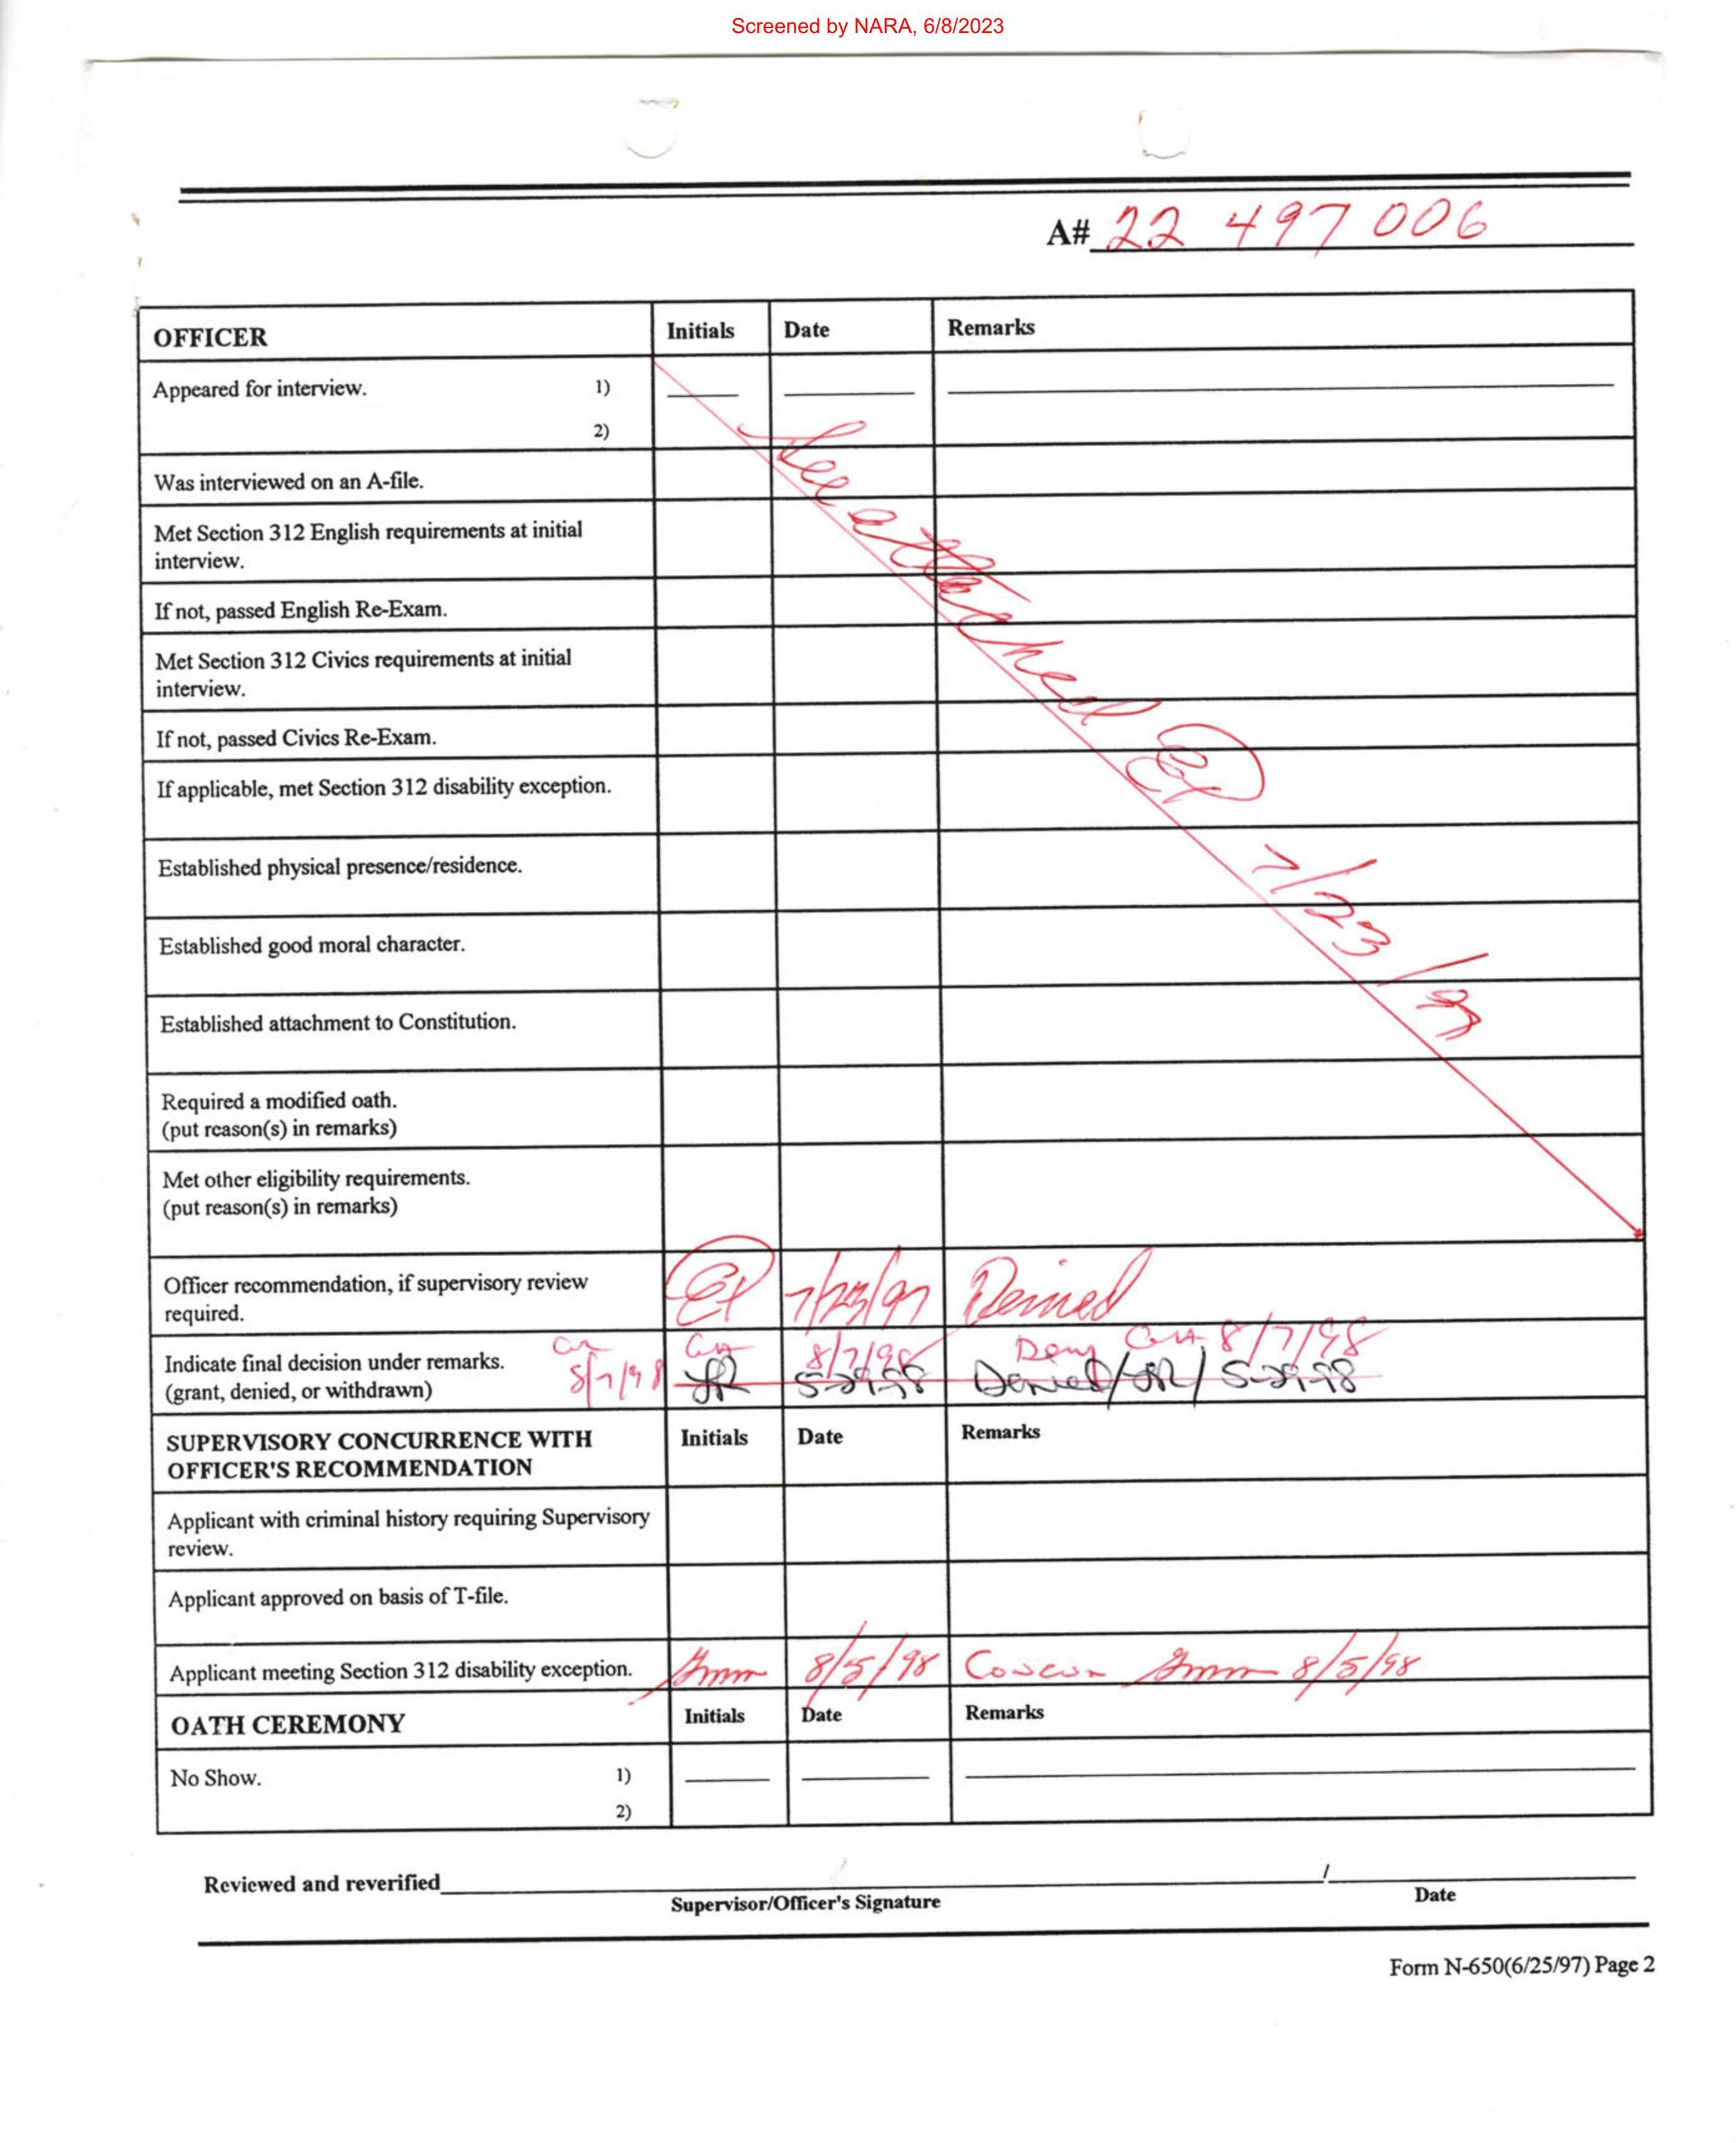 Screened by NARA, 6/8/2023
A# 22 497 006
OFFICER Initials Date Remarks
Appeared for interview. 1)
2)
Was interviewed on an A-file.
Met Section 312 English requirements at initial
interview.
If not, passed English Re-Exam.
Met Section 312 Civics requirements at initial
interview.
If not, passed Civics Re-Exam.
If applicable, met Section 312 disability exception.
Established physical presence/residence.
Established good moral character.
Established attachment to Constitution.
Required a modified oath.
(put reason(s) in remarks)
Met other eligibility requirements.
(put reason(s) in remarks)
See attached 7/23/97
Officer recommendation, if supervisory review
required. 7/23/97 Denied
Indicate final decision under remarks. 8/7/98 Deny 8/7/98
(grant, denied, or withdrawn) 8/7/98 5-29-98 Denied/ / 5-29-98
SUPERVISORY CONCURRENCE WITH
OFFICER'S RECOMMENDATION Initials Date Remarks
Applicant with criminal history requiring Supervisory
review.
Applicant approved on basis of T-file.
Applicant meeting Section 312 disability exception. 8/5/98 Concur 8/5/98
OATH CEREMONY Initials Date Remarks
No Show. 1)
2)
Reviewed and reverified /
Supervisor/Officer's Signature Date
Form N-650(6/25/97) Page 2